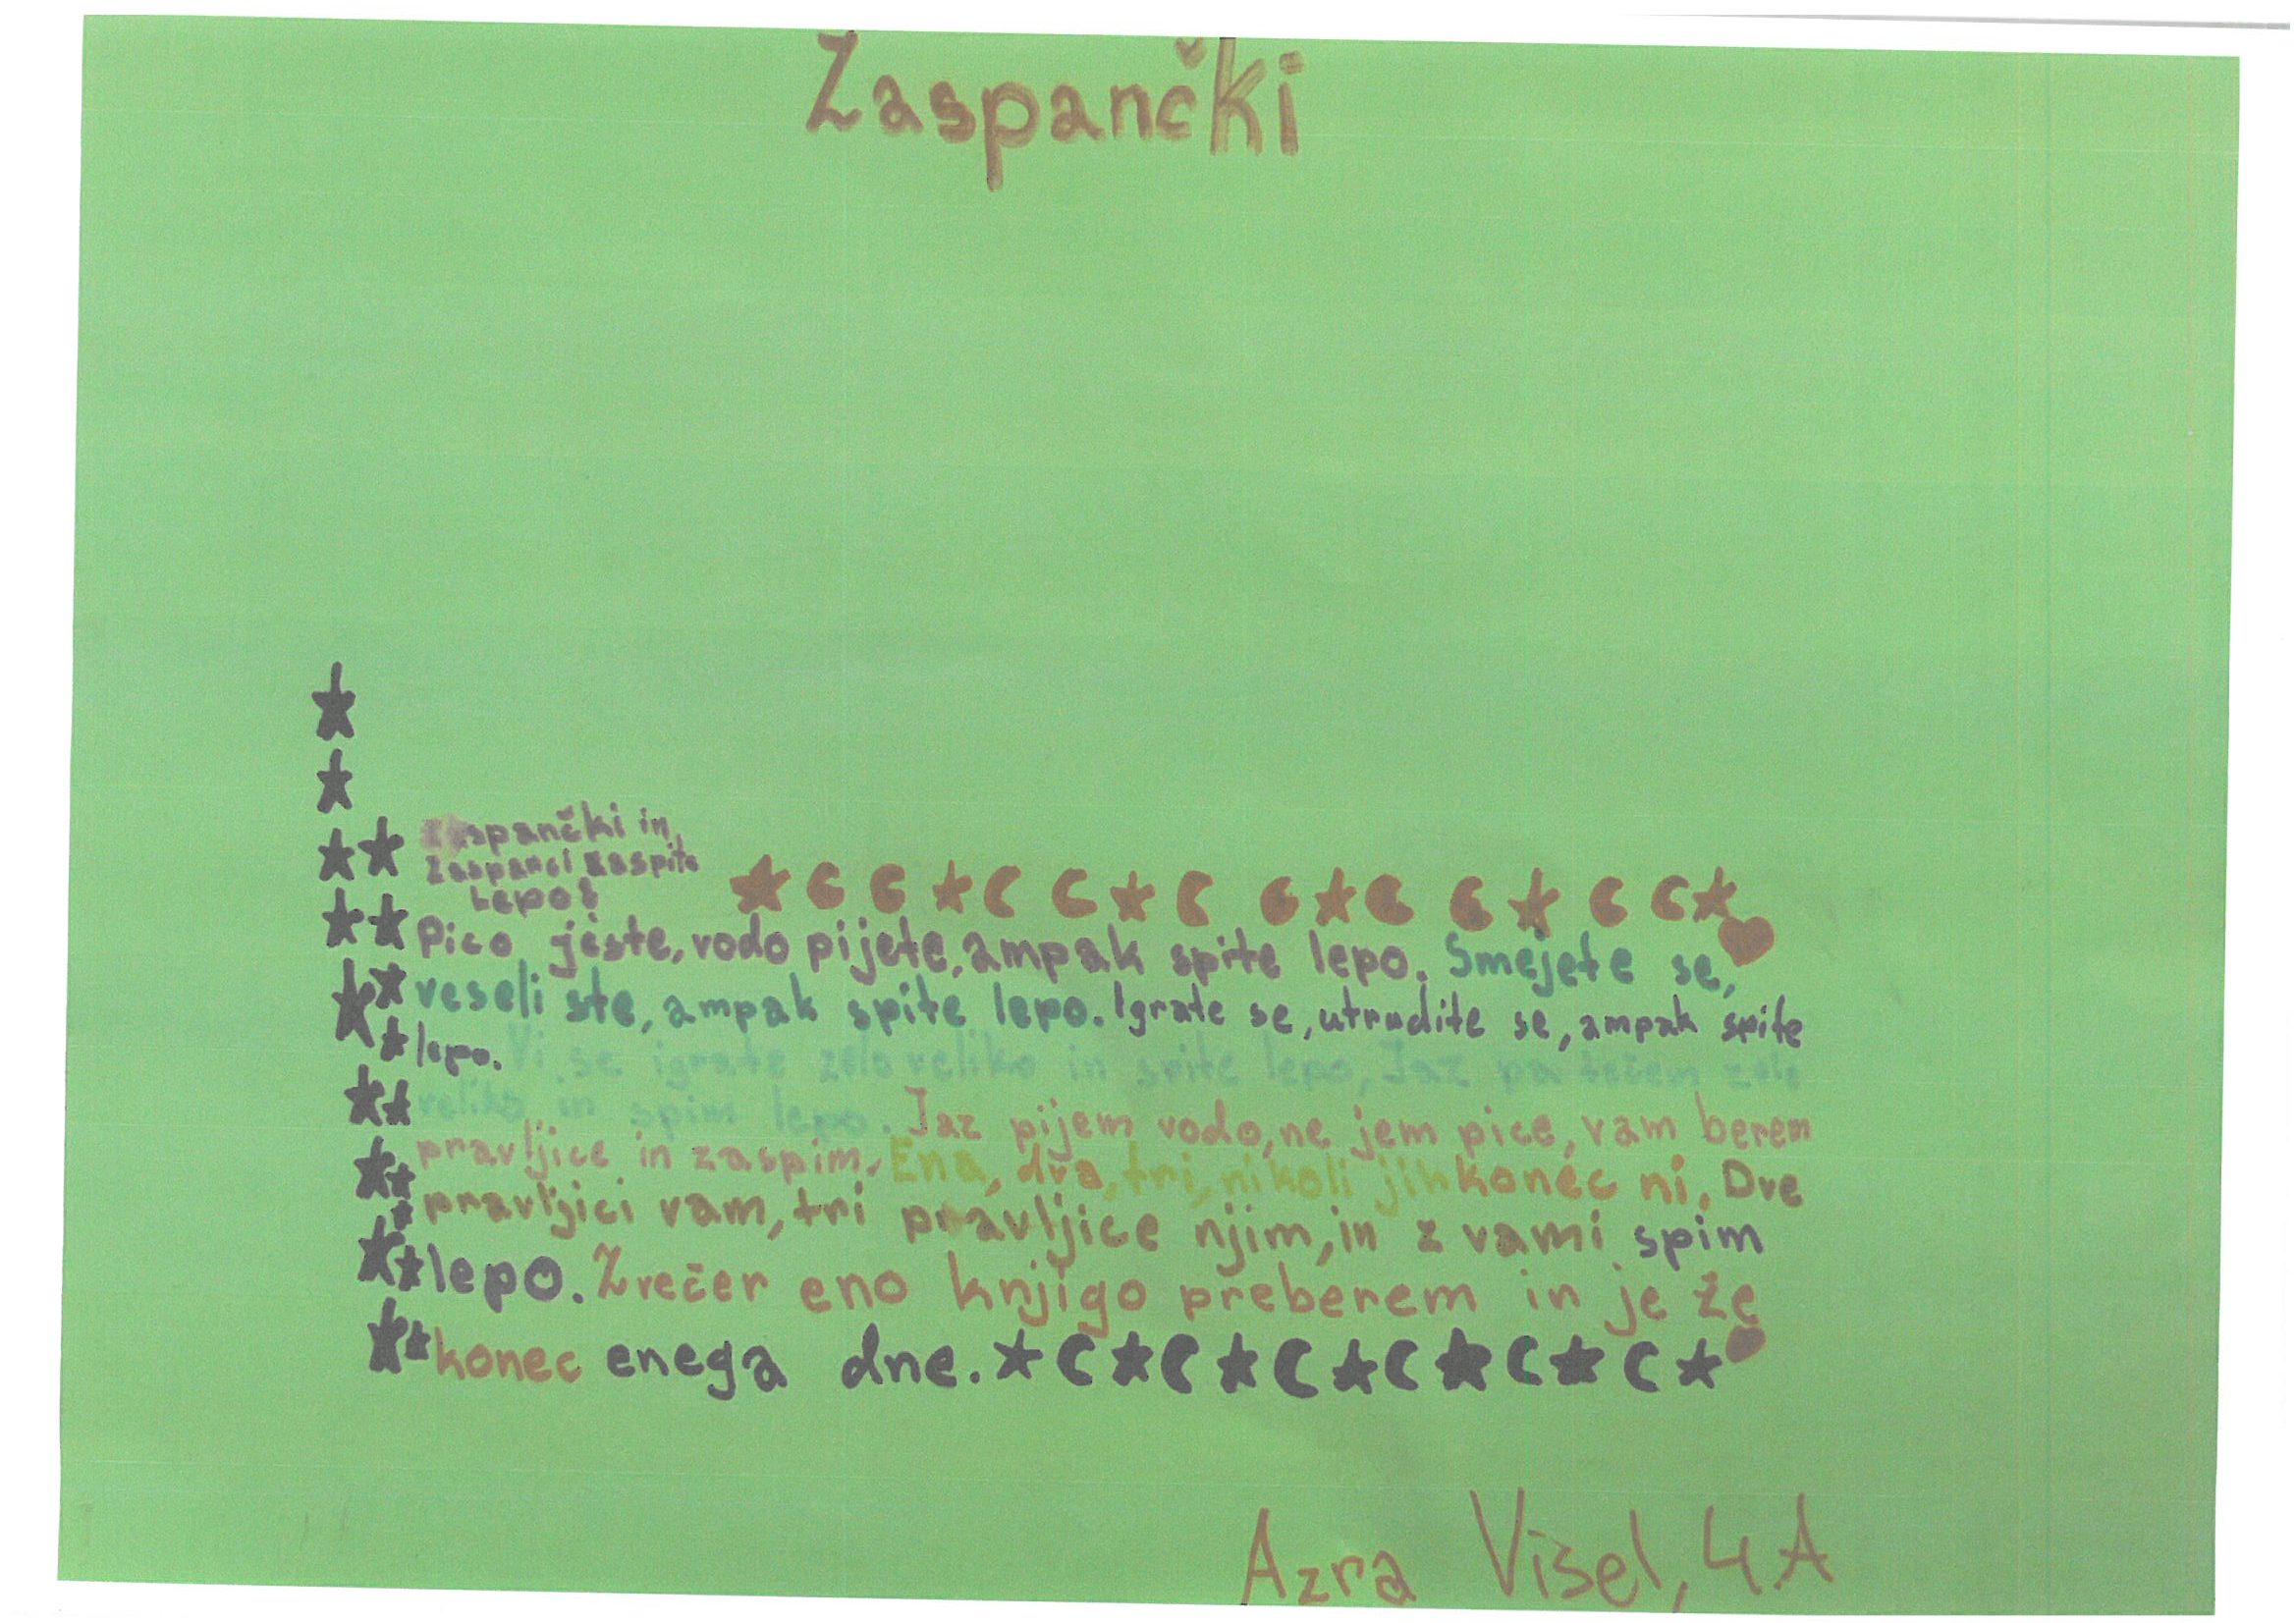 Zaspančki
Zaspančki in
Zaspanci zaspite
Lepo!
Pico jeste, vodo pijete, ampak spite lepo. Smejete se,
veseli ste, ampak spite lepo. Igrate se, utrudite se, ampak spite
lepo. Vi se igrate zelo veliko in spite lepo, Jaz pa tečem zelo
veliko in spim lepo. Jaz pijem vodo, ne jem pice, vam berem
pravljice in zaspim. Ena, dva, tri, nikoli jih konec ni. Dve
pravljici vam, tri pravljice njim, in z vami spim
lepo. Zvečer eno knjigo preberem in je že
konec enega dne.
Azra Visel, 4.A